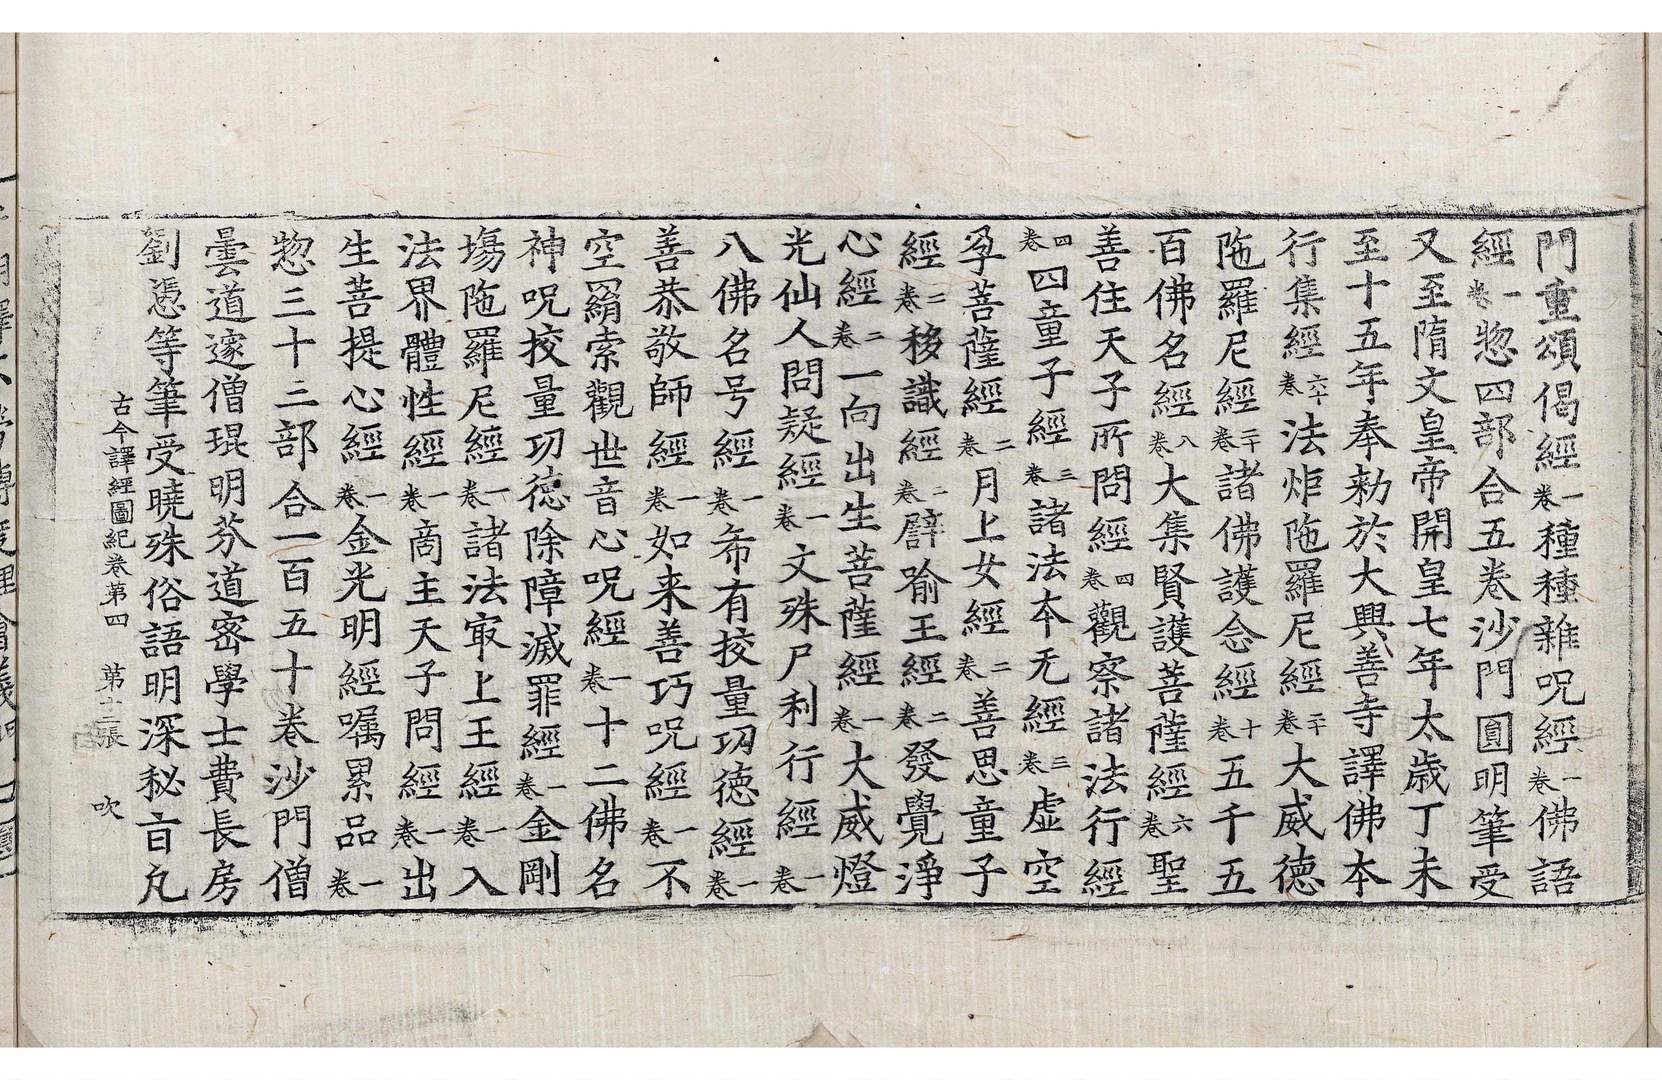 門重頌偈經一卷種種雜呪經一卷佛語
經一卷惣四部合五卷沙門圓明筆受
又至隋文皇帝開皇七年太歲丁未
至十五年奉勑於大興善寺譯佛本
行集經六十卷法炬陁羅尼經二十卷大威德
陁羅尼經二十卷諸佛護念經十卷五千五
百佛名經八卷大集賢護菩薩經六卷聖
善住天子所問經四卷觀察諸法行經
四卷四童子經三卷諸法本无經三卷虛空
孕菩薩經二卷月上女經二卷善思童子
經二卷移識經二卷譬喻王經二卷發覺淨
心經二卷一向出生菩薩經一卷大威燈
光仙人問疑經一卷文殊尸利行經一卷
八佛名号經一卷希有挍量功德經一卷
善恭敬師經一卷如来善巧呪經一卷不
空羂索觀世音心呪經一卷十二佛名
神呪挍量功德除障滅罪經一卷金剛
場陁羅尼經一卷諸法冣上王經一卷入
法界體性經一卷商主天子問經一卷出
生菩提心經一卷金光明經囑累品一卷
惣三十三部合一百五十卷沙門僧
曇道邃僧琨明芬道密學士費長房
劉憑等筆受曉殊俗語明深秘旨凡
古今譯經圖紀卷第四 苐十二張 吹